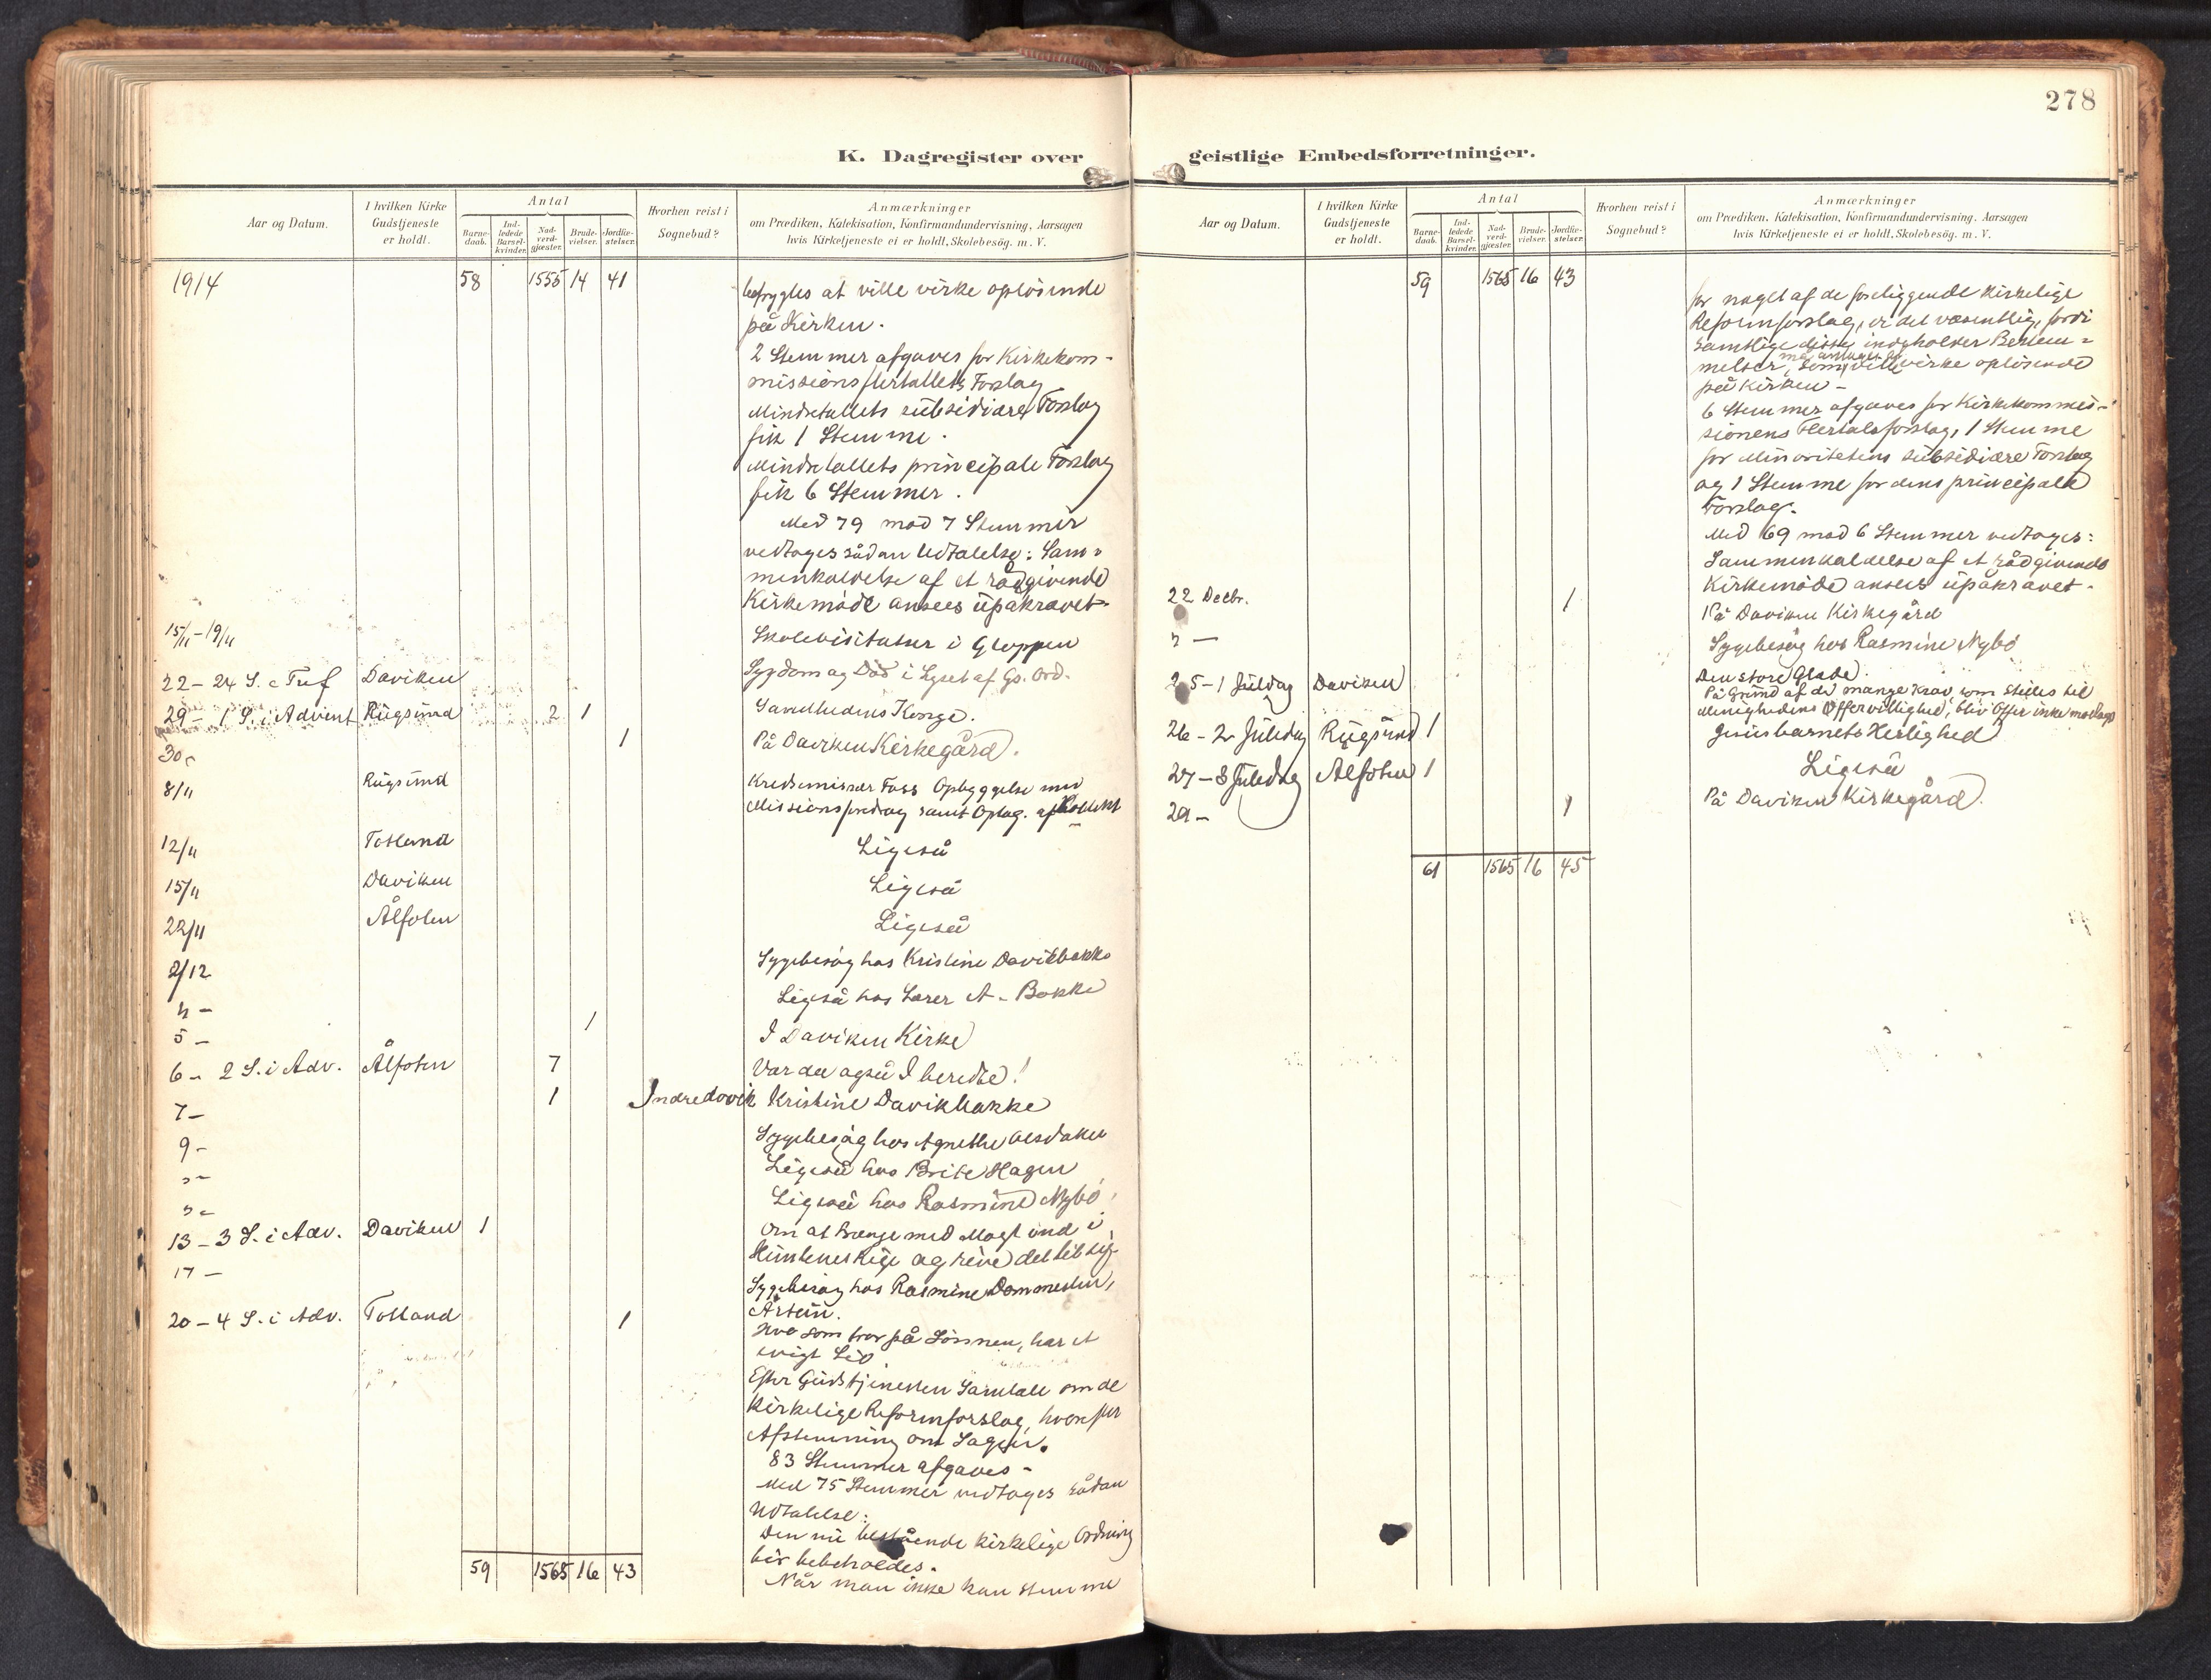 278
K. Dagregister over geistlige Embedsforretninger.
Aar og Datum.
I hvilken Kirke Gudstjeneste er holdt.
Antal
Barnedaab.
Indledede Barselkvinder.
Nadverdgjæster.
Brudevielser.
Jordfæstelser.
Hvorhen reist i Sognebud?
Anmærkninger
om Prædiken, Katekisation, Konfirmandundervisning, Aarsagen
hvis Kirketjeneste ei er holdt, Skolebesög. m. V.
1914 58 1555 14 41
befrygtes at ville virke opløsende
på Kirken.
2 Stemmer afgaves for Kirkekom-
missionsflertallets Forslag
Mindretallets subsidiære Forslag
fik 1 Stemme.
Mindretallets principale Forslag
fik 6 Stemmer.
Med 79 mod 7 Stemmer
vedtoges sådan Udtalelse: Sam-
menkaldelse af et rådgivende
Kirkemöde ansees upåkrævet.
15/11-19/11 Skolevisitatser i Gloppen
22- 24 S. e Tref Daviken Sygdom og Död i Lyset af Gs. Ord.
29- 1 S. i Advent Rugsund 2 1 Sandhedens Konge.
30- 1 På Daviken Kirkegård.
8/11 Rugsund Kredsmissær Foss Opbyggelse med
Missionsforedrag samt Optag. af Kollekt
12/11 Totland Ligeså
15/11 Daviken Ligeså
22/11 Ålfoten Ligeså
2/12 Sygebesög hos Kristine Davikbakke
4 - Ligeså hos Lærer A. Bakke
5 - 1 I Daviken Kirke
6 - 2 S. i Adv. Ålfoten 7 Vær der også I beredte!
7 - 1 Indredavik Kristine Davikbakke
9 - Sygebesög hos Agnethe
"- Ligeså hos Brite Hagen
"- Ligeså hos Rasmine Nybö.
13 - 3 S. i Adv. Daviken 1 Om at trænge med Magt ind i
Himlenes Rige og rive det til sig
17 - Sygebesög hos Rasmine Dommesten,
20 - 4 S. i Adv. Totland 1 Hvo som tror på Sönnen, har et
evigt Liv
Efter Gudstjenesten Samtale om de
kirkelige Reformforslag, hvorefter
Afstemning om Sagen.
83 Stemmer afgaves -
Med 75 Stemmer vedtoges sådan
Udtalelse:
Den nu bestående kirkelige Ordning
bör bebeholdes.
Når man ikke kan stemme
59 1565 16 43
Aar og Datum.
I hvilken Kirke Gudstjeneste er holdt.
Antal
Barnedaab.
Indledede Barselkvinder.
Nadverdgjæster.
Brudevielser.
Jordfæstelser.
Hvorhen reist i Sognebud?
Anmærkninger
om Prædiken, Katekisation, Konfirmandundervisning, Aarsagen
hvis Kirketjeneste ei er holdt, Skolebesög. m. V.
59 1565 16 43
for noget af de foreliggende kirkelige
Reformforslag, er det væsentlig, fordi
samtlige disse indeholder Bestem-
melser, som må antages at ville virke oplösende
på Kirken -
6 Stemmer afgaves for Kirkekommis-
sionens Flertalsforslag, 1 Stemme
for Minoritetens subsidiære Forslag
og 1 Stemme for dens principale
Forslag.
Med 69 mod 6 Stemmer vedtoges:
Sammenkaldelse af et rådgivende
Kirkemöde ansees upåkrævet.
22 Decbr. 1 På Daviken Kirkegård
" - Sygebesög hos Rasmine Nybö
25-1 Juldag Daviken Den store Glæde.
På Grund af de mange Krav, som stilles til
Menighedens Offervillighed, blev Offer ikke modtaget
26-2 Juledag Rugsund 1 Jesusbarnets Herlighed
27-3 Juledag Ålfoten 1 Ligeså
29- 1 På Daviken Kirkegård.
61 1565 16 45